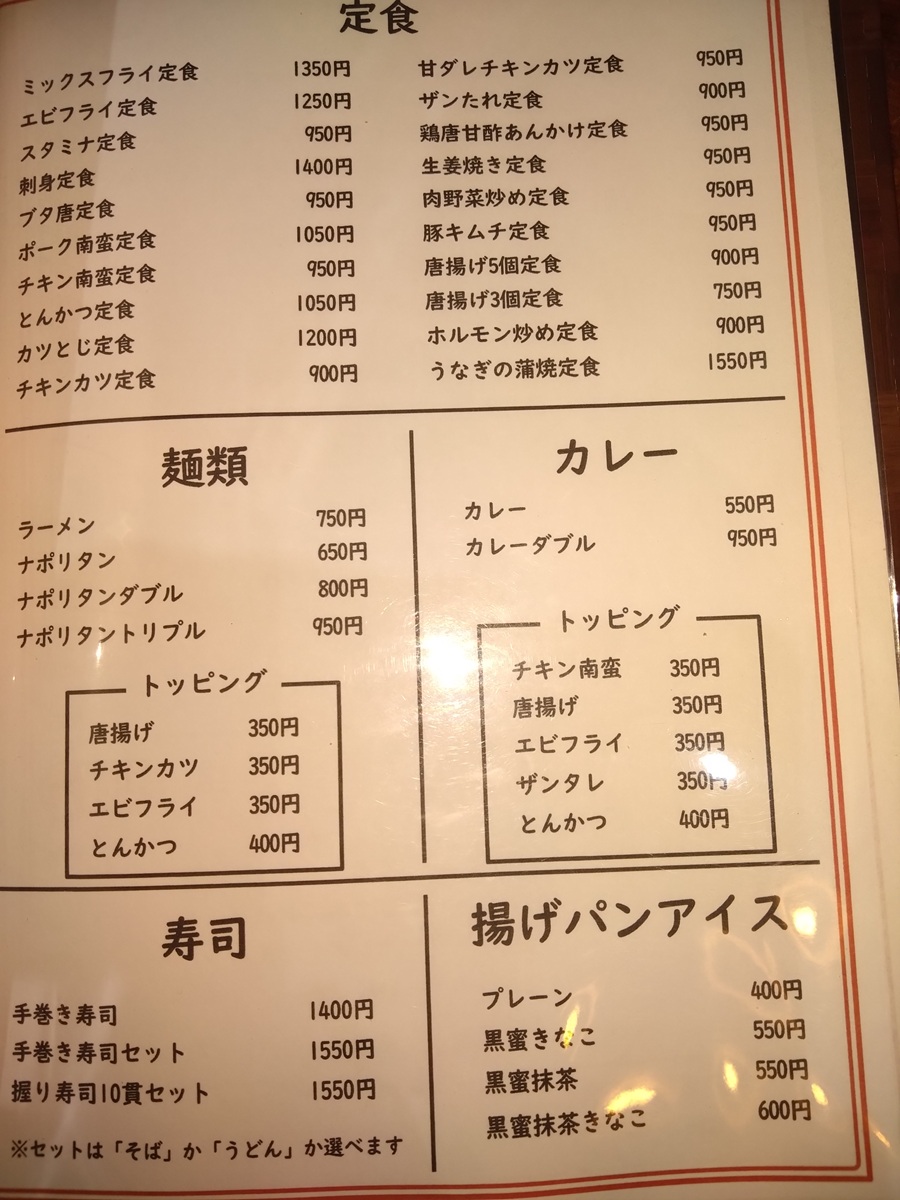 定食
ミックスフライ定食 1350円
エビフライ定食 1250円
スタミナ定食 950円
刺身定食 1400円
ブタ唐定食 950円
ポーク南蛮定食 1050円
チキン南蛮定食 950円
とんかつ定食 1050円
カツとじ定食 1200円
チキンカツ定食 900円
甘ダレチキンカツ定食 950円
ザンたれ定食 900円
鶏唐甘酢あんかけ定食 950円
生姜焼き定食 950円
肉野菜炒め定食 950円
豚キムチ定食 950円
唐揚げ5個定食 900円
唐揚げ3個定食 750円
ホルモン炒め定食 900円
うなぎの蒲焼定食 1550円
麺類
ラーメン 750円
ナポリタン 650円
ナポリタンダブル 800円
ナポリタントリプル 950円
トッピング
唐揚げ 350円
チキンカツ 350円
エビフライ 350円
とんかつ 400円
カレー
カレー 550円
カレーダブル 950円
トッピング
チキン南蛮 350円
唐揚げ 350円
エビフライ 350円
ザンタレ 350円
とんかつ 400円
寿司
手巻き寿司 1400円
手巻き寿司セット 1550円
握り寿司10貫セット 1550円
※セットは「そば」か「うどん」か選べます
揚げパンアイス
プレーン 400円
黒蜜きなこ 550円
黒蜜抹茶 550円
黒蜜抹茶きなこ 600円